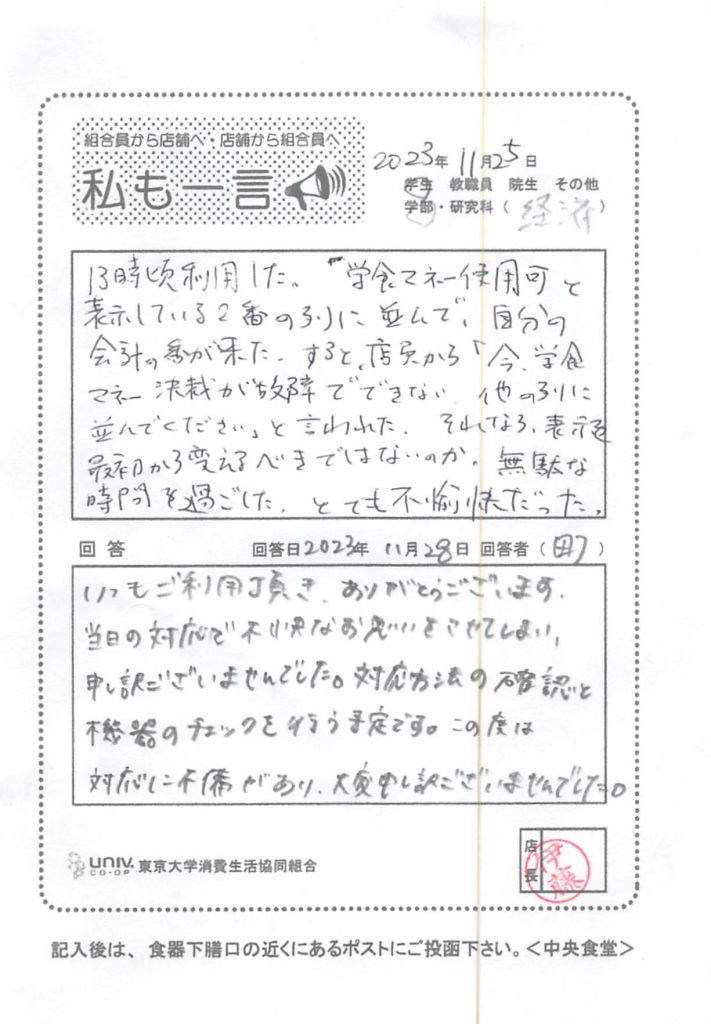 組合員から店舗へ・店舗から組合員へ
私も一言
2023年 11月25日
学生 教職員 院生 その他
学部・研究科（経済）
13時頃利用した。「学食マネー使用可と
表示している2番の列に並んで、自分の
会計の番が来た。すると、店員から「今、学食
マネー決裁が故障でできない。他の列に
並んでください」と言われた。それなら、表示を
最初から変えるべきではないのか。無駄な
時間を過ごした。とても不愉快だった。
回答 回答日2023年 11月28日 回答者（田）
いつもご利用頂き、ありがとうございます。
当日の対応で不快なお思いをさせてしまい、
申し訳ございませんでした。対応方法の確認と
機器のチェックを行う予定です。この度は
対応に不備があり、大変申し訳ございませんでした。
UNIV. CO-OP 東京大学消費生活協同組合
店長
伊藤
記入後は、食器下膳口の近くにあるポストにご投函下さい。＜中央食堂＞